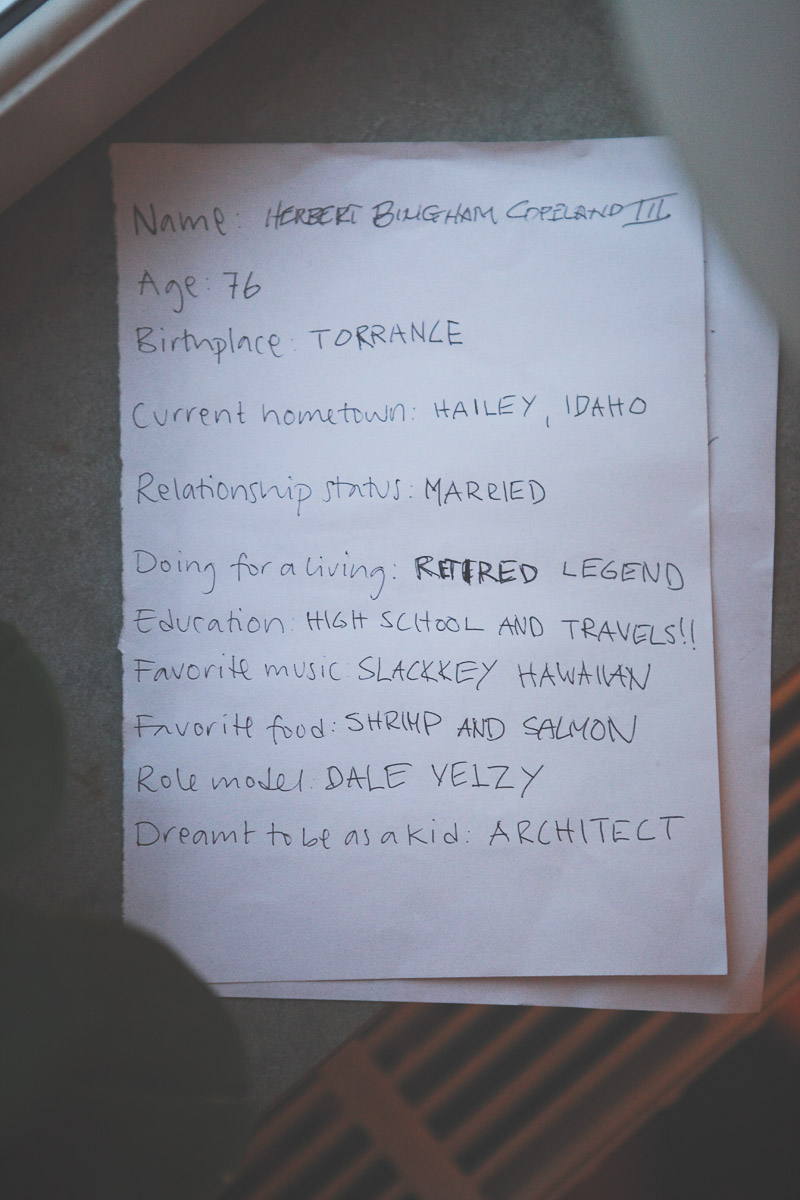 Name: HERBERT BINGHAM COPELAND III
Age: 76
Birthplace: TORRANCE
Current hometown: HAILEY, IDAHO
Relationship status: MARRIED
Doing for a living: RETIRED LEGEND
Education: HIGH SCHOOL AND TRAVELS!!
Favorite music SLACKKEY HAWAIIAN
Favorite food: SHRIMP AND SALMON
Role model: DALE VELZY
Dreamt to be as a kid: ARCHITECT